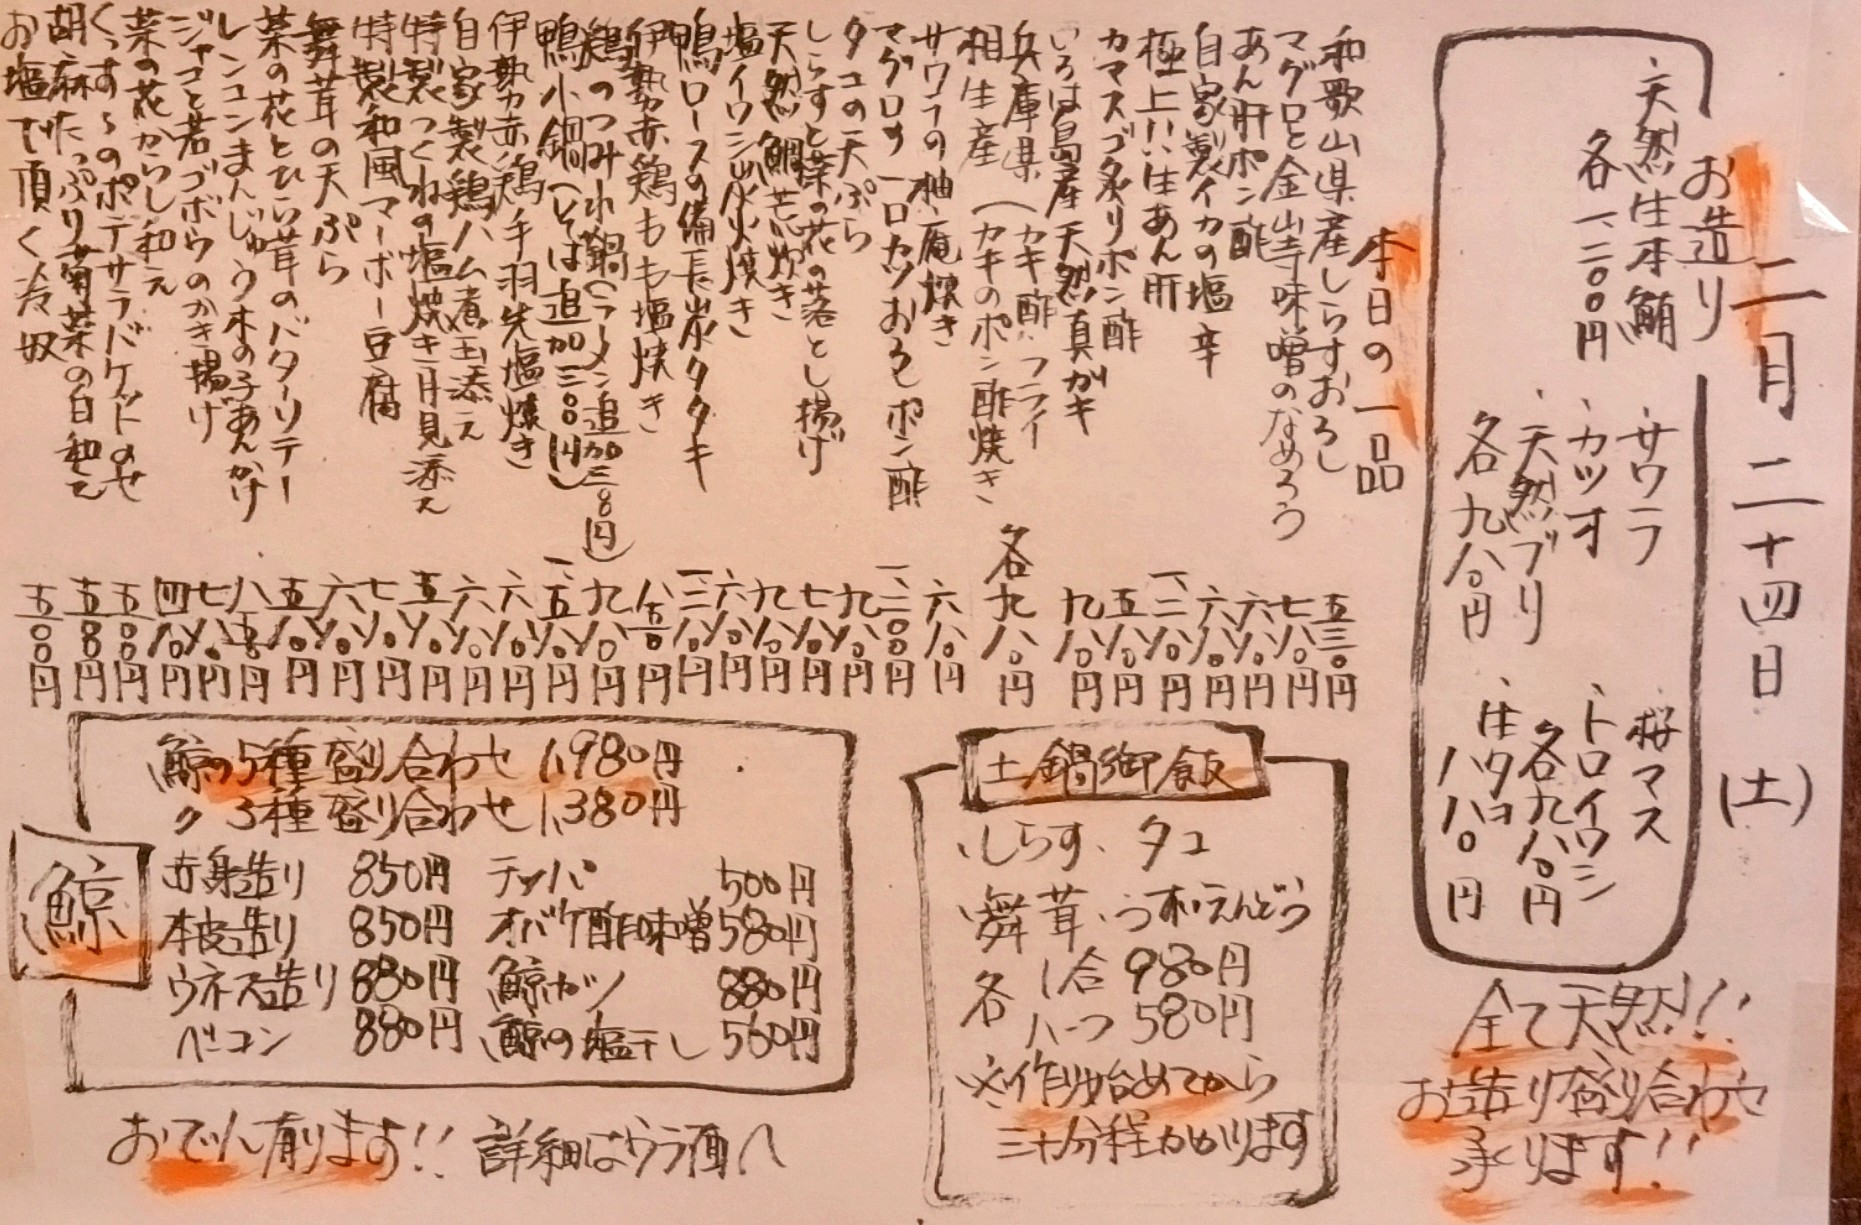 二月二十四日(土)
お造り
天然生本鮪
各一、二〇〇円
サワラ
カツオ
天然ブリ
各九八〇円
桜マス
トロイワシ
各九八〇円
生タコ
八八〇円
全て天然!!
お造り盛り合わせ
承ります!!
本日の一品
和歌山県産しらすおろし 五三〇円
マグロと金山寺味噌のなめろう 七八〇円
あん肝ポン酢 六八〇円
自家製イカの塩辛 六八〇円
極上!!生あん肝 一、二八〇円
カマスゴ炙りポン酢 五八〇円
いろは島産天然真ガキ 九八〇円
兵庫県 (カキ酢、フライ
相生産 (カキのポン酢焼き
各九八〇円
サワラの柚庵焼き 六八〇円
マグロの一口カツおろしポン酢 一、二〇〇円
タコの天ぷら 九八〇円
しらすと菜の花の落とし揚げ 七八〇円
天然鯛荒炊き 九八〇円
塩イワシ炭火焼き 六八〇円
鴨ロースの備長炭タタキ 一、二八〇円
伊勢赤鶏もも塩焼き 八五〇円
鶏のつみれ鍋(ラーメン追加三八〇円) 九八〇円
鴨小鍋(そば追加三〇〇円) 一、五八〇円
伊勢赤鶏手羽先塩焼き 六八〇円
自家製鶏ハム煮玉添え 六八〇円
特製つくねの塩焼き月見添え 五八〇円
特製和風マーボー豆腐 七八〇円
舞茸の天ぷら 六八〇円
菜の花とひら茸のバターソテー 五八〇円
レンコンまんじゅう木の子あんかけ 八五〇円
ジャコと若ゴボウのかき揚げ 七八〇円
菜の花からし和え 四八〇円
くっすぅのポテサラバケットのせ 五〇〇円
胡麻たっぷり菊菜の白和え 五八〇円
お塩で頂く冷奴 五〇〇円
土鍋御飯
、しらす、タコ
、舞茸、うすいえんどう
各 1合 980円
ハーフ 580円
※作り始めてから
三十分程かかります
鯨
鯨の5種盛り合わせ 1,980円
〃 3種盛り合わせ 1,380円
赤身造り 850円 テッパ 500円
本皮造り 850円 オバケ酢味噌 580円
ウネス造り 880円 鯨カツ 880円
ベーコン 880円 鯨の塩干し 560円
おでん有ります!! 詳細はウラ面へ